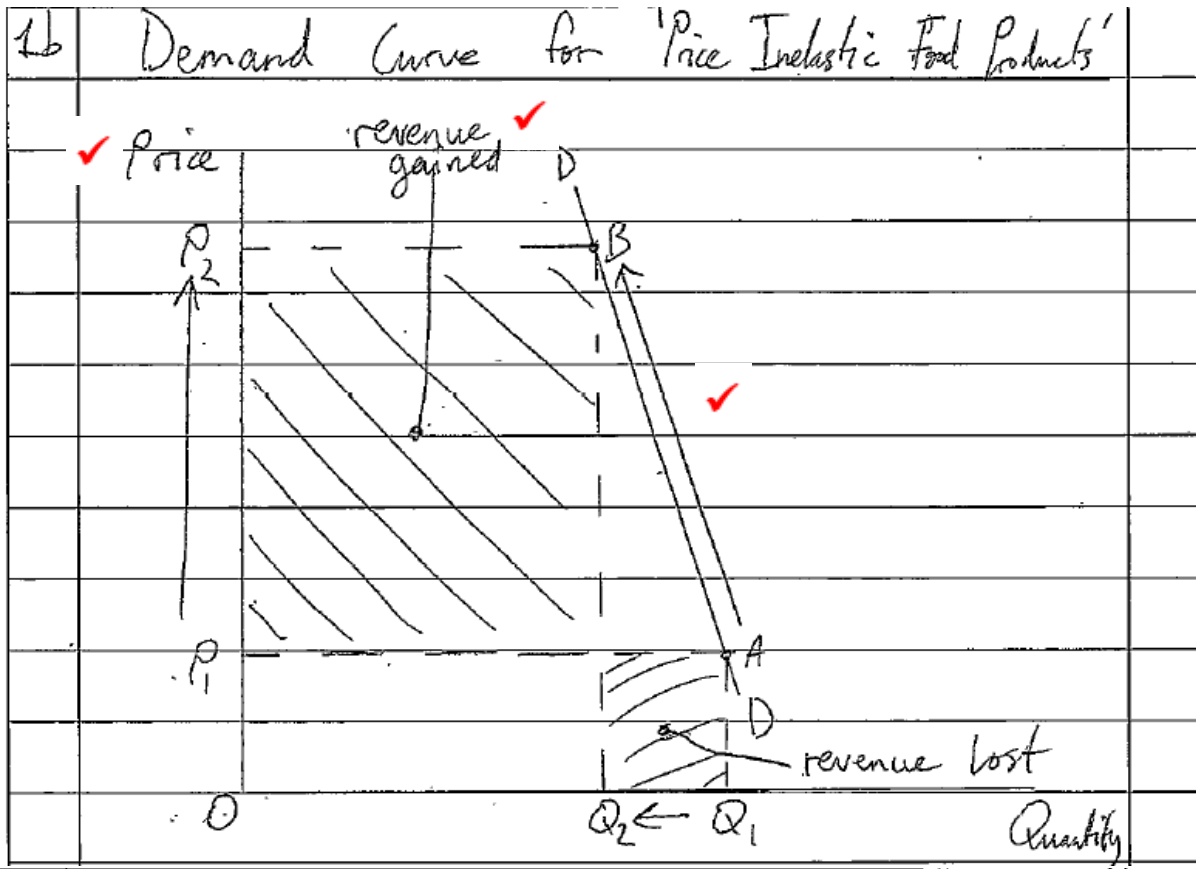 1b Demand Curve for 'Price Inelastic Food Products'
Price
revenue
gained
D
P2
B
P1
A
D
revenue lost
O
Q2 ← Q1
Quantity